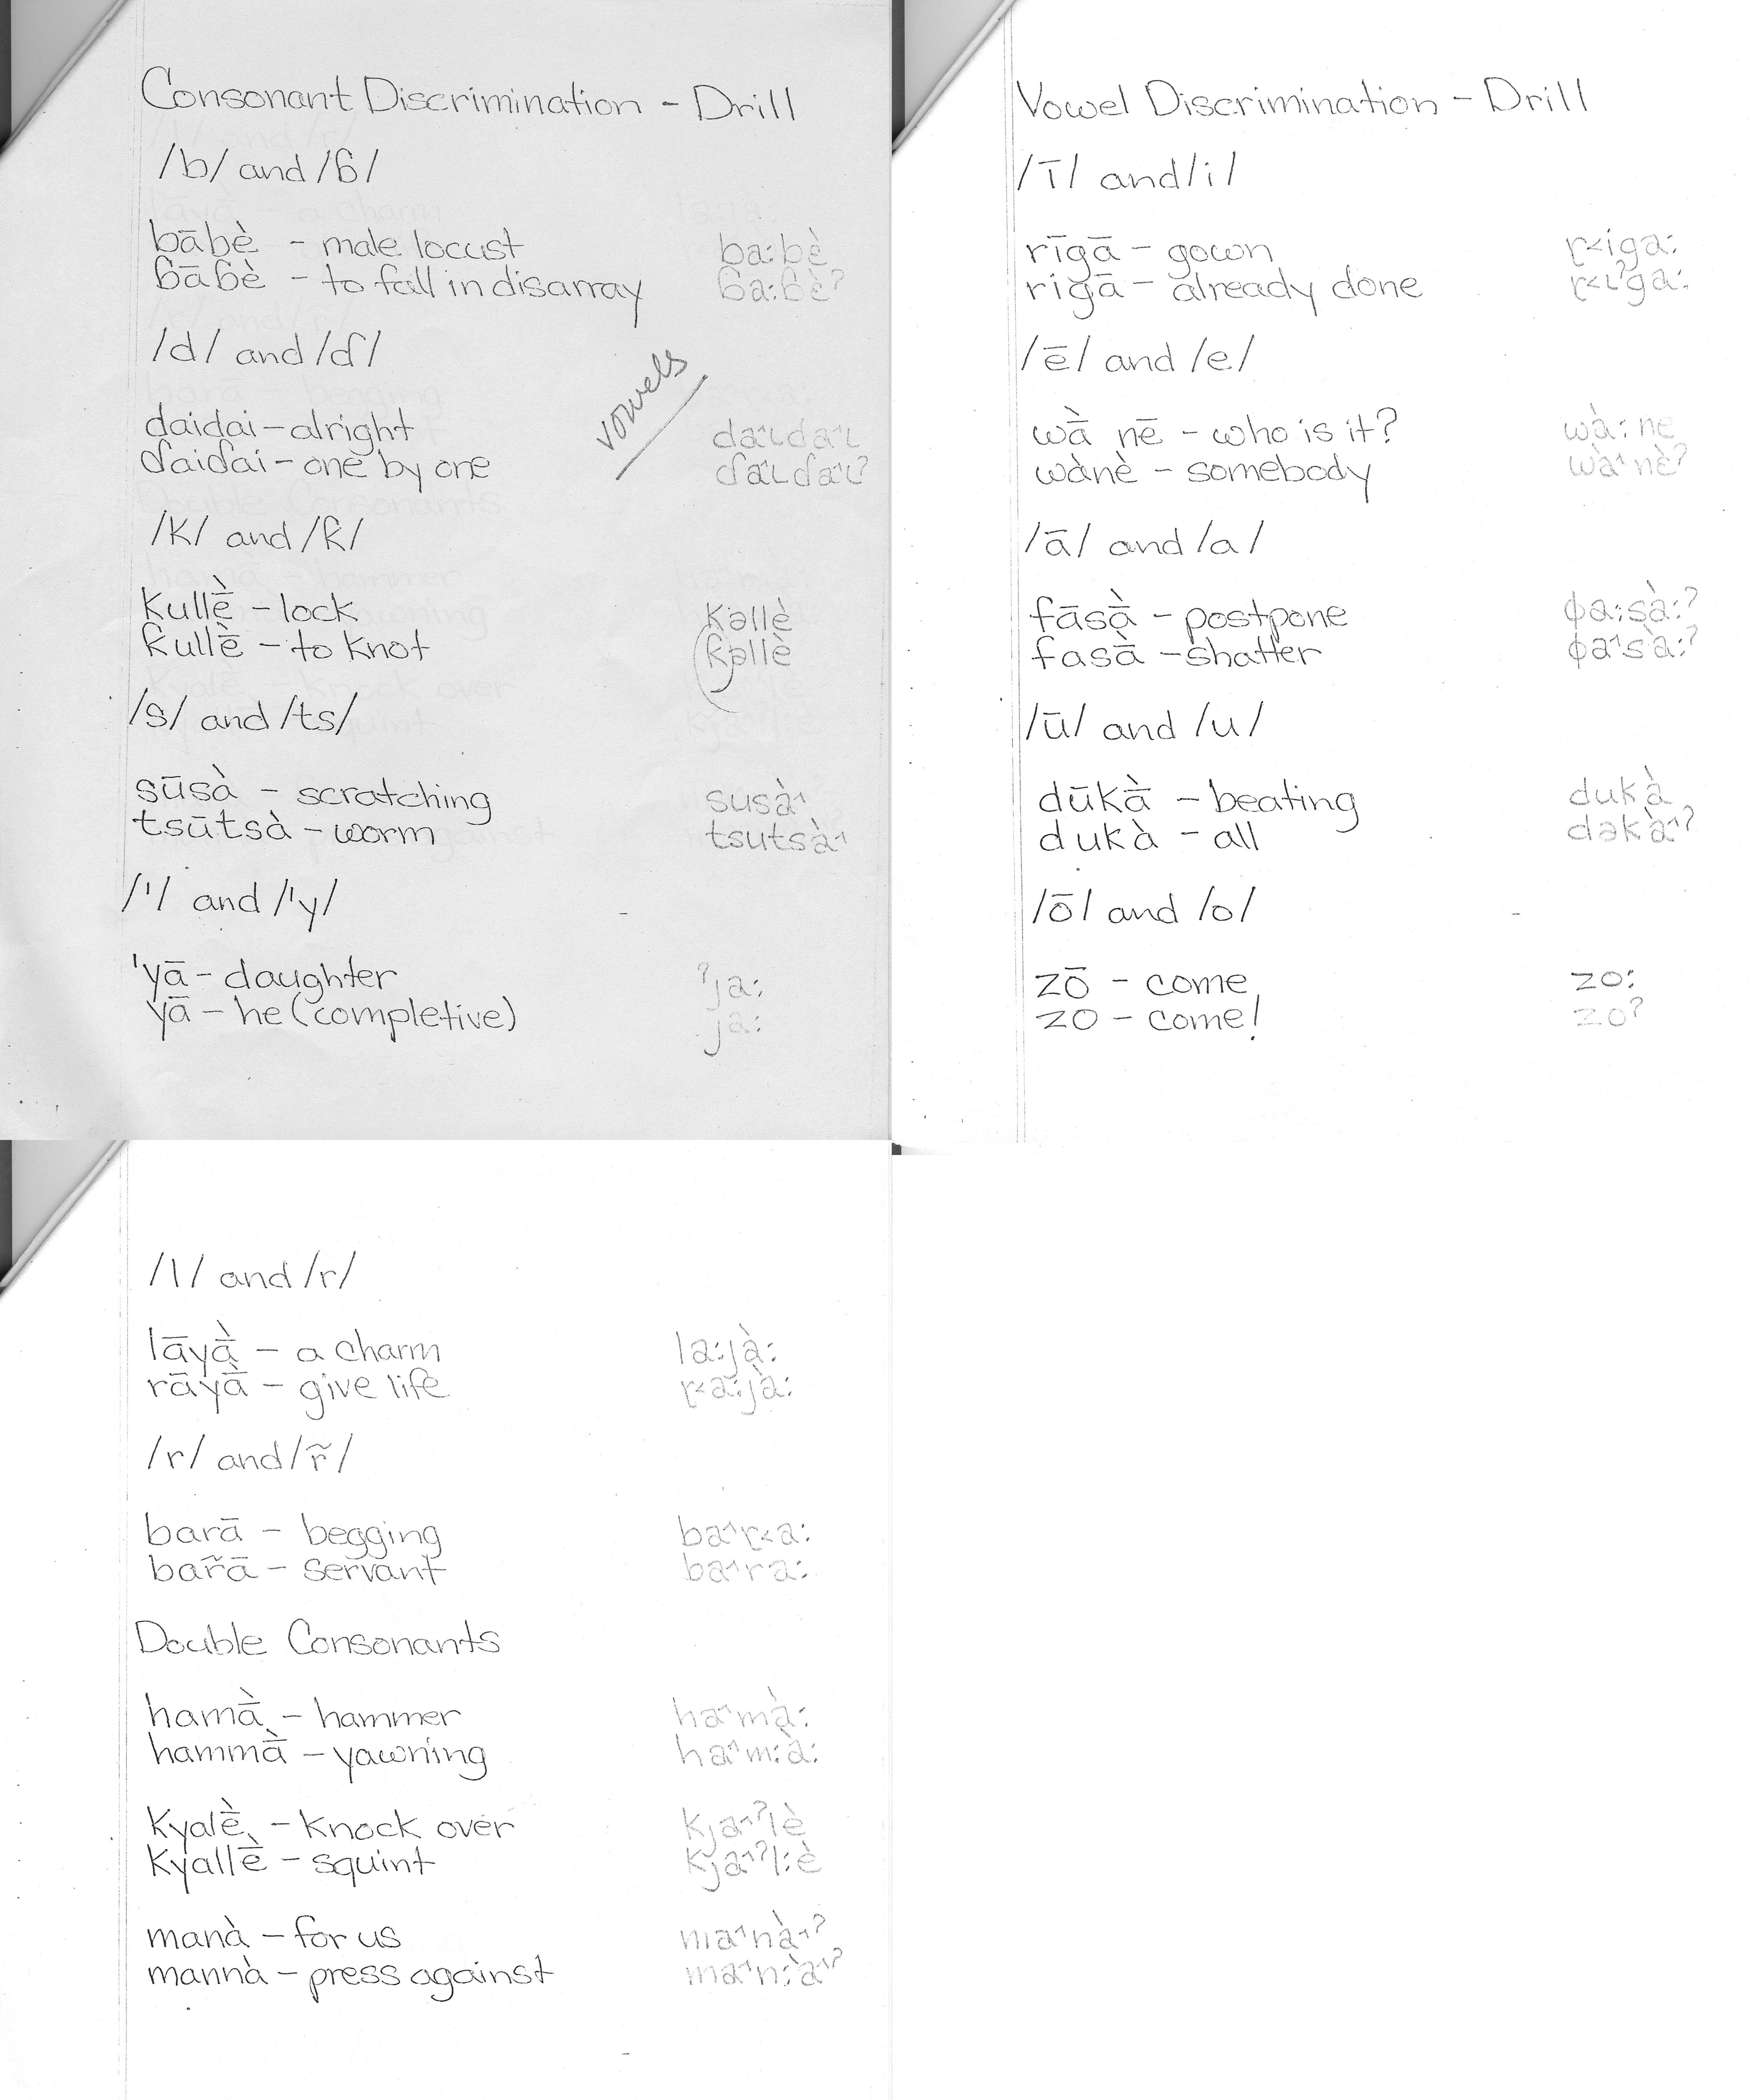 Consonant Discrimination - Drill
/b/ and /ɓ/
bābè - male locust ba:bè
ɓāɓè - to fall in disarray ɓa:ɓèˀ
/d/ and /ɗ/
vowels
daidai - alright da˄ɩda˄ɩ
ɗaiɗai - one by one ɗa˄ɩɗa˄ɩˀ
/k/ and /ƙ/
kullḕ - lock kəllè
ƙullḕ - to knot ƙəllè
/s/ and /ts/
sūsà - scratching susà˄
tsūtsà - worm tsutsà˄
/'/ and /'y/
'yā - daughter ˀja:
yā - he (completive) ja:
Vowel Discrimination - Drill
/ī/ and /i/
rīgā - gown ɽ˂iga:
rigā - already done ɽ˂ɩˀga:
/ē/ and /e/
wā̀ nē - who is it? wà:ne
wànè - somebody wà˄nèˀ
/ā/ and /a/
fāsā̀ - postpone ɸa:sà:ˀ
fasā̀ - shatter ɸa˄sà:ˀ
/ū/ and /u/
dūkā̀ - beating dukà
dukà - all dəkà˄ˀ
/ō/ and /o/
zō - come zo:
zo - come! zoˀ
/l/ and /r/
lāyā̀ - a charm la:jà:
rāyā̀ - give life ɽ˂a:jà:
/r/ and /r̃/
barā - begging ba˄ɽ˂a:
bar̃ā - servant ba˄ra:
Double Consonants
hamā̀ - hammer ha˄mà:
hammā̀ - yawning ha˄m:à:
kyalḕ - knock over kja˄ˀlè
kyallḕ - squint kja˄ˀl:è
manà - for us ma˄nà˄ˀ
mannà - press against ma˄n:à˄ˀ